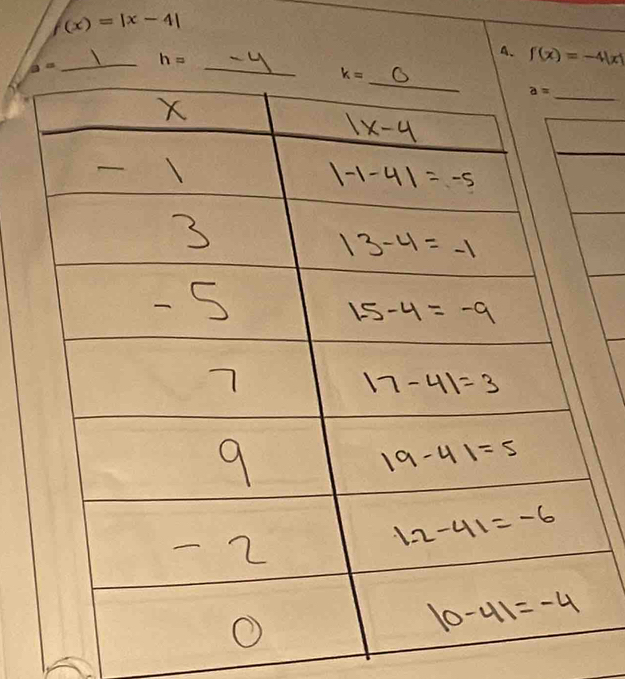 f(x) = |x − 4|
a = 1 h = -4 k = 0
4. f(x) = −4|x|
a =
x |x-4
-1 |-1-4| = -5
3 |3-4 = -1
-5 |-5-4 = -9
7 |7-4| = 3
9 |9-4| = 5
-2 |-2-4| = -6
0 |0-4| = -4